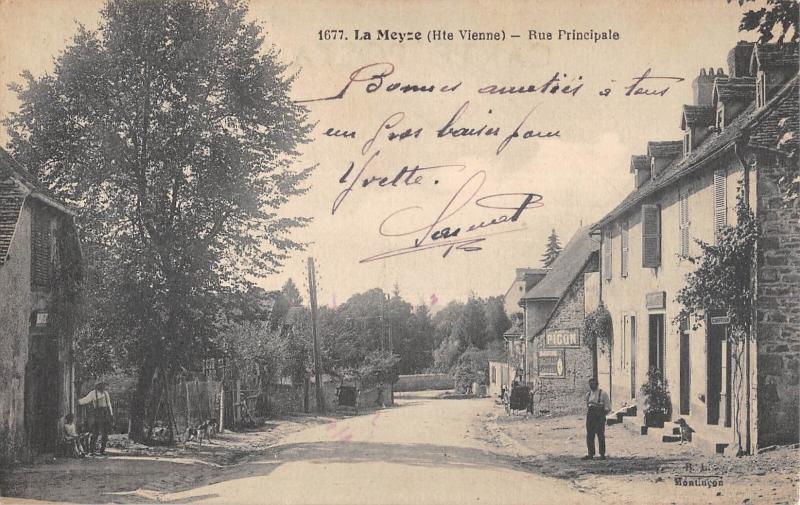 1677. La Meyze (Hte Vienne) — Rue Principale
Bonnes amitiés à tous
un gros baiser pour
Yvette.
PICON
B. L.
Montluçon